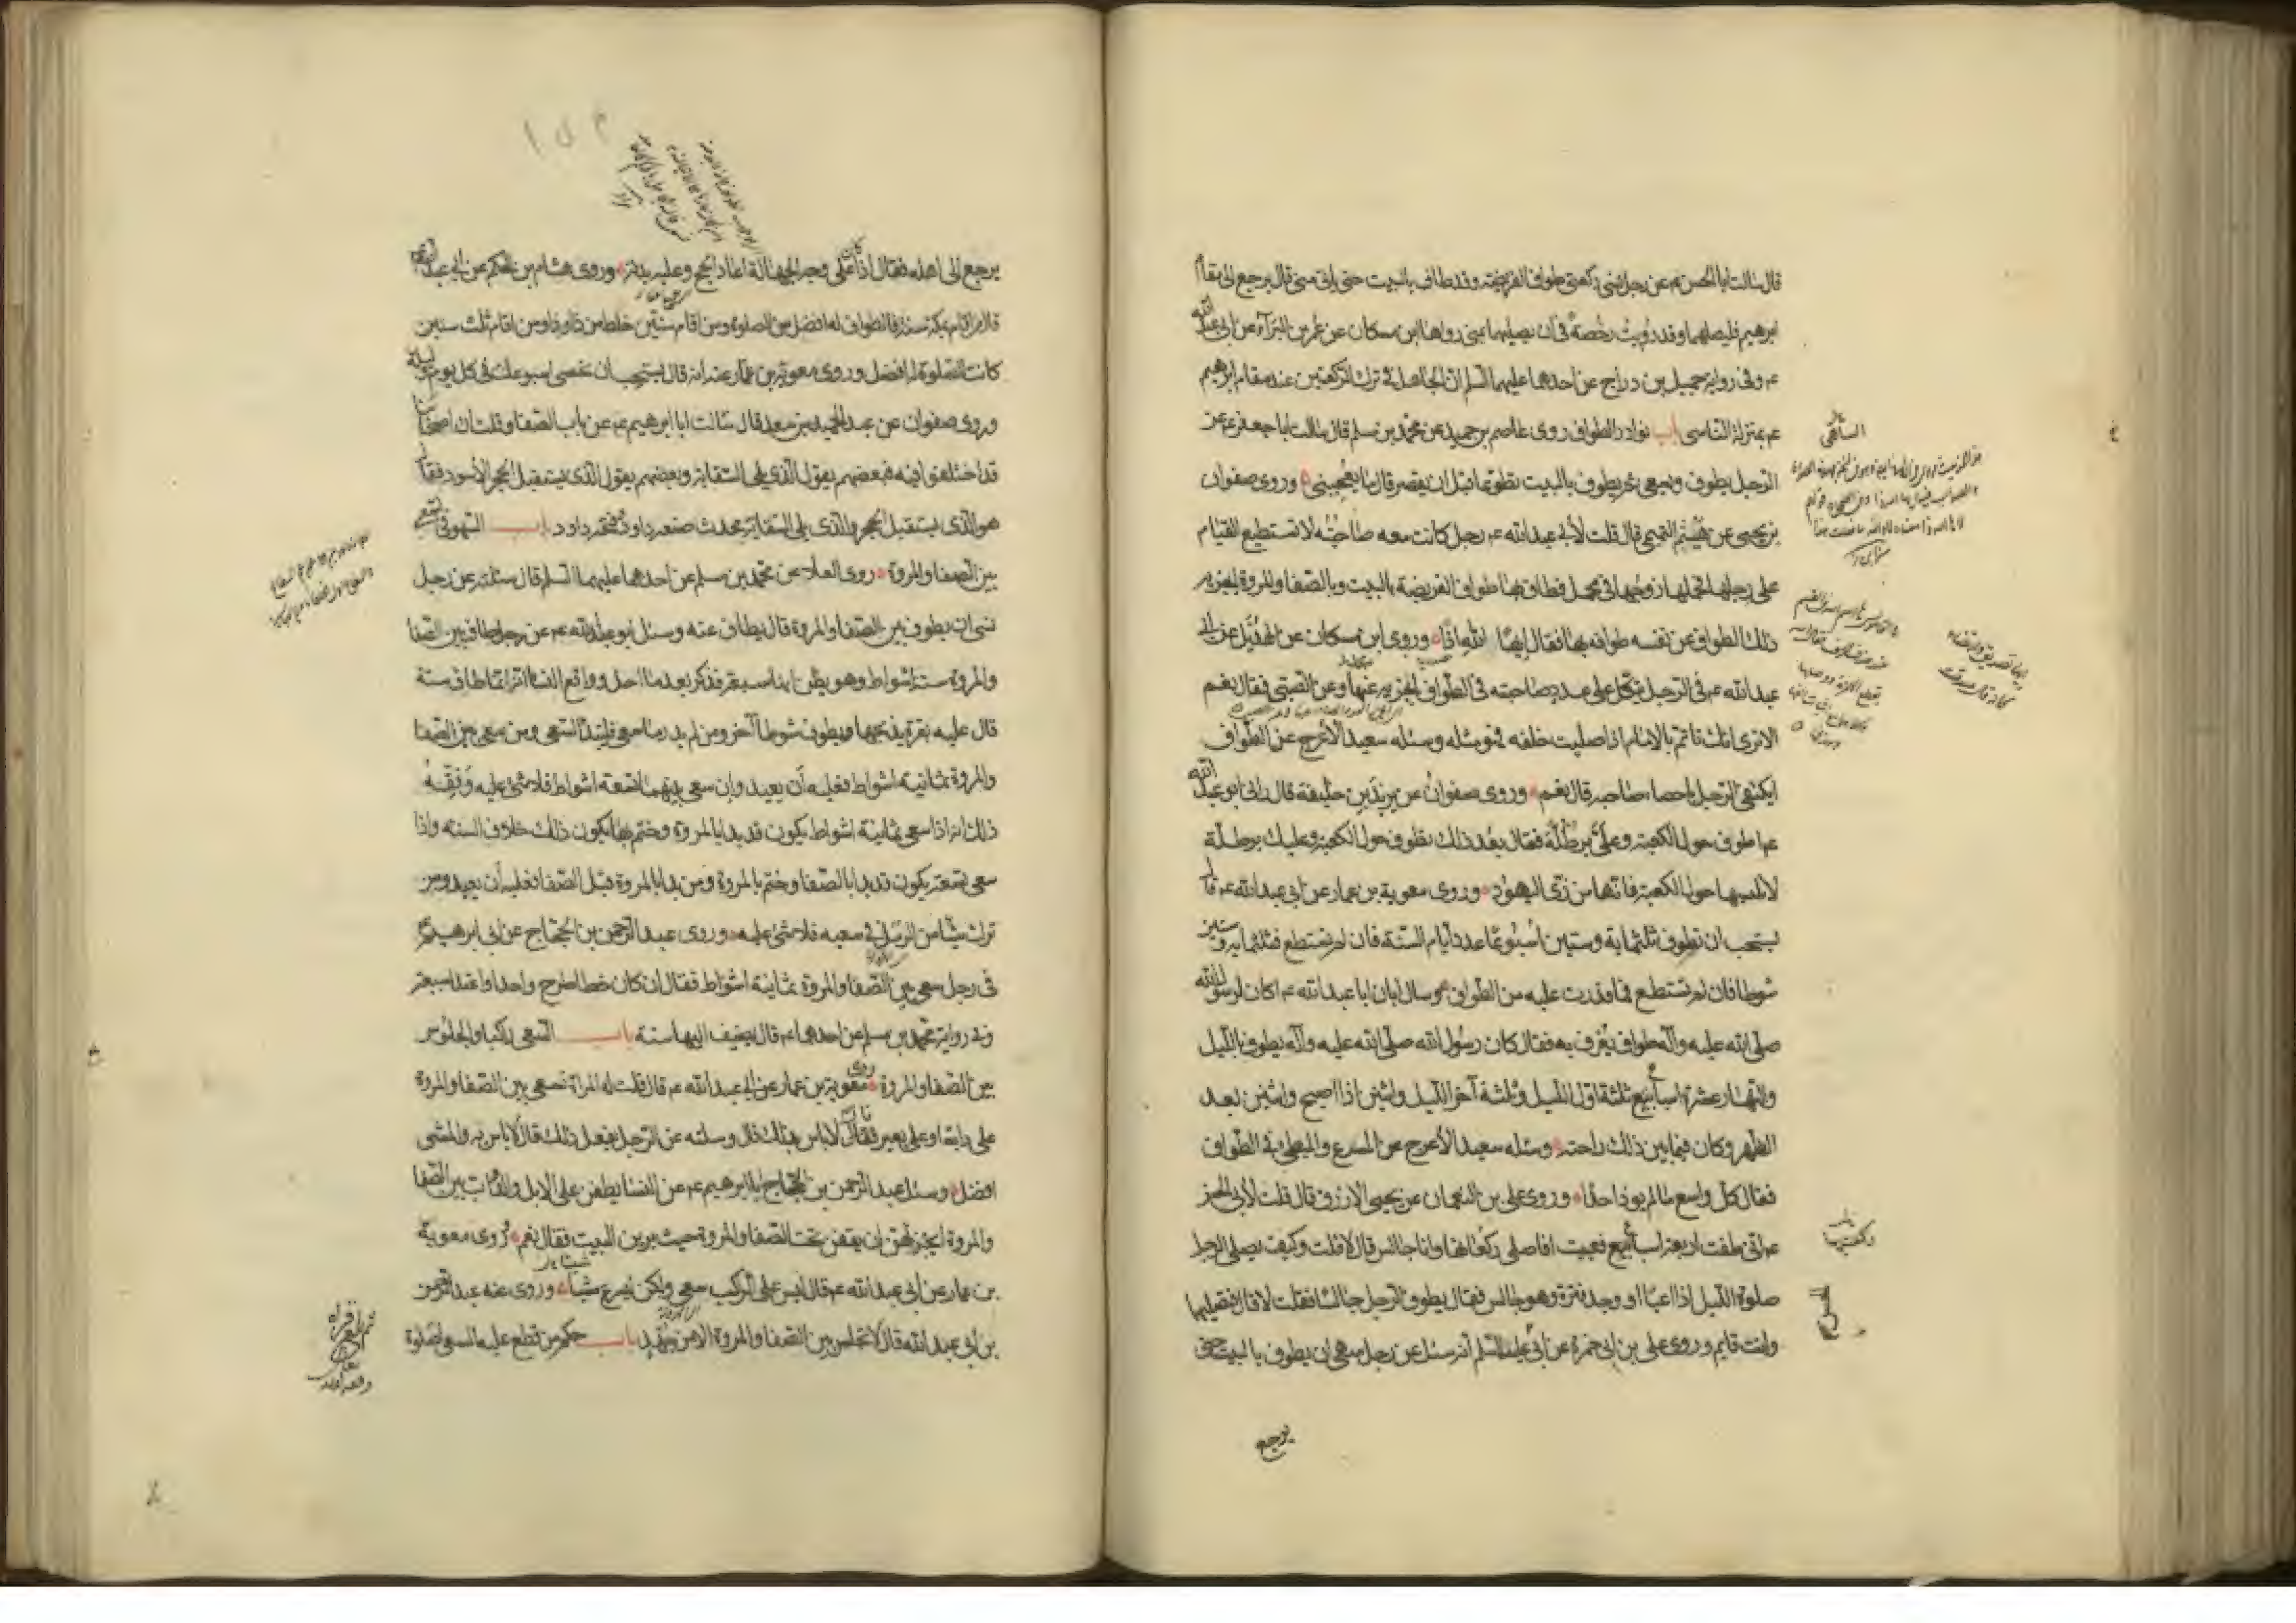 قال سالت ابا الحسن ع عن رجل نسى ركعتى طواف الفريضة وقد طاف بالبيت حتى ياتى منى قال يرجع الى مقام
ابرهيم فليصلهما وقد رويت رخصة فى ان يصليهما بمنى رواها ابن مسكان عن عمر بن البراء عن ابى عبد الله
ع وفى رواية جميل بن دراج عن احدهما عليهما السلم ان الجاهل فى ترك الركعتين عند مقام ابرهيم
ع بمنزلة الناسى باب نوادر الطواف روى عاصم بن حميد عن محمد بن مسلم قال سالت ابا جعفر ع عن
الرجل يطوف ويسعى ثم يطوف بالبيت تطوعا قبل ان يقصر قال ما يعجبنى وروى صفوان
بن يحيى عن هيثم التميمى قال قلت لأبى عبد الله ع رجل كانت معه صاحبته لا تستطيع القيام
على رجلها فحملها زوجها فى محمل فطاف بها طواف الفريضة بالبيت وبالصفا والمروة ايجزيه
ذلك الطواف عن نفسه طوافه بها فقال ايها الله اذا وروى ابن مسكان عن الهذيل عن ابى
عبد الله ع فى الرجل يتكل على عدد صاحبته فى الطواف ايجزيه عنها وعن الصبى فقال نعم
الا ترى انك تاتم بالامام اذا صليت خلفه فهو مثله وسئله سعيد الأعرج عن الطواف
ايكتفى الرجل باحصاء صاحبه قال نعم وروى صفوان عن يزيد بن خليفة قال رانى ابو عبد الله
ع اطوف حول الكعبة وعلى برطلة فقال بعد ذلك تطوف حول الكعبة وعليك برطلة
لا تلبسها حول الكعبة فانها من زى اليهود وروى معوية بن عمار عن ابى عبد الله ع قال
يستحب ان تطوف ثلثماية وستين اسبوعا عدد ايام السنة فان لم تستطع فثلثماية وستين
شوطا فان لم تستطع فما قدرت عليه من الطواف وسال ابان ابا عبد الله ع اكان لرسول الله
صلى الله عليه وآله طواف يعرف به فقال كان رسول الله صلى الله عليه وآله يطوف بالليل
والنهار عشرة اسابيع ثلثة اول الليل وثلثة آخر الليل واثنين اذا اصبح واثنين بعد
الظهر وكان فيما بين ذلك راحته وسئله سعيد الأعرج عن المسرع والمبطى فى الطواف
فقال كل واسع ما لم يوذ احدا وروى على بن النعمان عن يحيى الازرق قال قلت لأبى الحسن
ع انى طفت اربعة اسابيع فعييت افاصلى ركعاتها وانا جالس قال لا قلت وكيف يصلى الرجل
صلوة الليل اذا اعيا او وجد فترة وهو جالس فقال يطوف الرجل جالسا فقلت لا قال فتصليهما
وانت قايم وروى على بن ابى حمزة عن ابى عليه السلم انه سئل عن رجل سهى ان يطوف بالبيت حتى
يرجع
يرجع الى اهله فقال اذا كان على وجه الجهالة اعاد الحج وعليه بدنة وروى هشام بن الحكم عن ابى عبد الله ع
قال من اقام بمكة سنة فالطواف له افضل من الصلوة ومن اقام سنتين خلط من ذا وذا ومن اقام ثلث سنين
كانت الصلوة له افضل وروى معوية بن عمار عنه انه قال يستحب ان تحصى اسبوعك فى كل يوم وليلة
وروى صفوان عن عبد الحميد بن سعد قال سالت ابا ابرهيم ع عن باب الصفا وقلت ان اصحابنا
قد اختلفوا فيه فبعضهم يقول الذى يلى السقاية وبعضهم يقول الذى يستقبل الحجر الأسود فقال
هو الذى يستقبل الحجر والذى يلى السقاية محدث صنعه داود وفتحه داود باب السهو فى السعى
بين الصفا والمروة روى العلا عن محمد بن مسلم عن احدهما عليهما السلم قال سئلته عن رجل
نسى ان يطوف بين الصفا والمروة قال يطاف عنه وسئل ابو عبد الله ع عن رجل طاف بين الصفا
والمروة ستة اشواط وهو يظن انها سبعة فذكر بعد ما احل وواقع النسا انه انما طاف ستة
قال عليه بقرة يذبحها ويطوف شوطا آخر ومن لم يدر ما سعى فليبتدأ السعى ومن سعى بين الصفا
والمروة ثمانية اشواط فعليه ان يعيد وان سعى بينهما تسعة اشواط فلا شئ عليه وفقه
ذلك انه اذا سعى ثمانية اشواط يكون قد بدا بالمروة وختم بها يكون ذلك خلاف السنة واذا
سعى تسعة يكون قد بدا بالصفا وختم بالمروة ومن بدا بالمروة قبل الصفا فعليه ان يعيد ومن
ترك شيئا من الرمل فى سعيه فلا شئ عليه وروى عبد الرحمن بن الحجاج عن ابى ابرهيم ع
فى رجل سعى بين الصفا والمروة ثمانية اشواط فقال ان كان خطا طرح واحدا واعتد بسبعة
وفى رواية محمد بن مسلم عن احدهما ع قال يضيف اليها ستة باب السعى راكبا والجلوس
بين الصفا والمروة روى معوية بن عمار عن ابى عبد الله ع قال قلت له المراة تسعى بين الصفا والمروة
على دابة او على بعير فقال لا باس بذلك قال وسئلته عن الرجل يفعل ذلك قال لا باس به والمشى
افضل وسئل عبد الرحمن بن الحجاج ابا ابرهيم ع عن النسا يطفن على الابل والدواب بين الصفا
والمروة ايجزيهن ان يقفن تحت الصفا والمروة حيث يرين البيت فقال نعم وروى معوية
بن عمار عن ابى عبد الله ع قال ليس على الراكب سعى ولكن ليسرع شيئا وروى عنه عبد الرحمن
بن ابى عبد الله قال لا تجلس بين الصفا والمروة الا من جهد باب حكم من قطع عليه السعى لصلوة